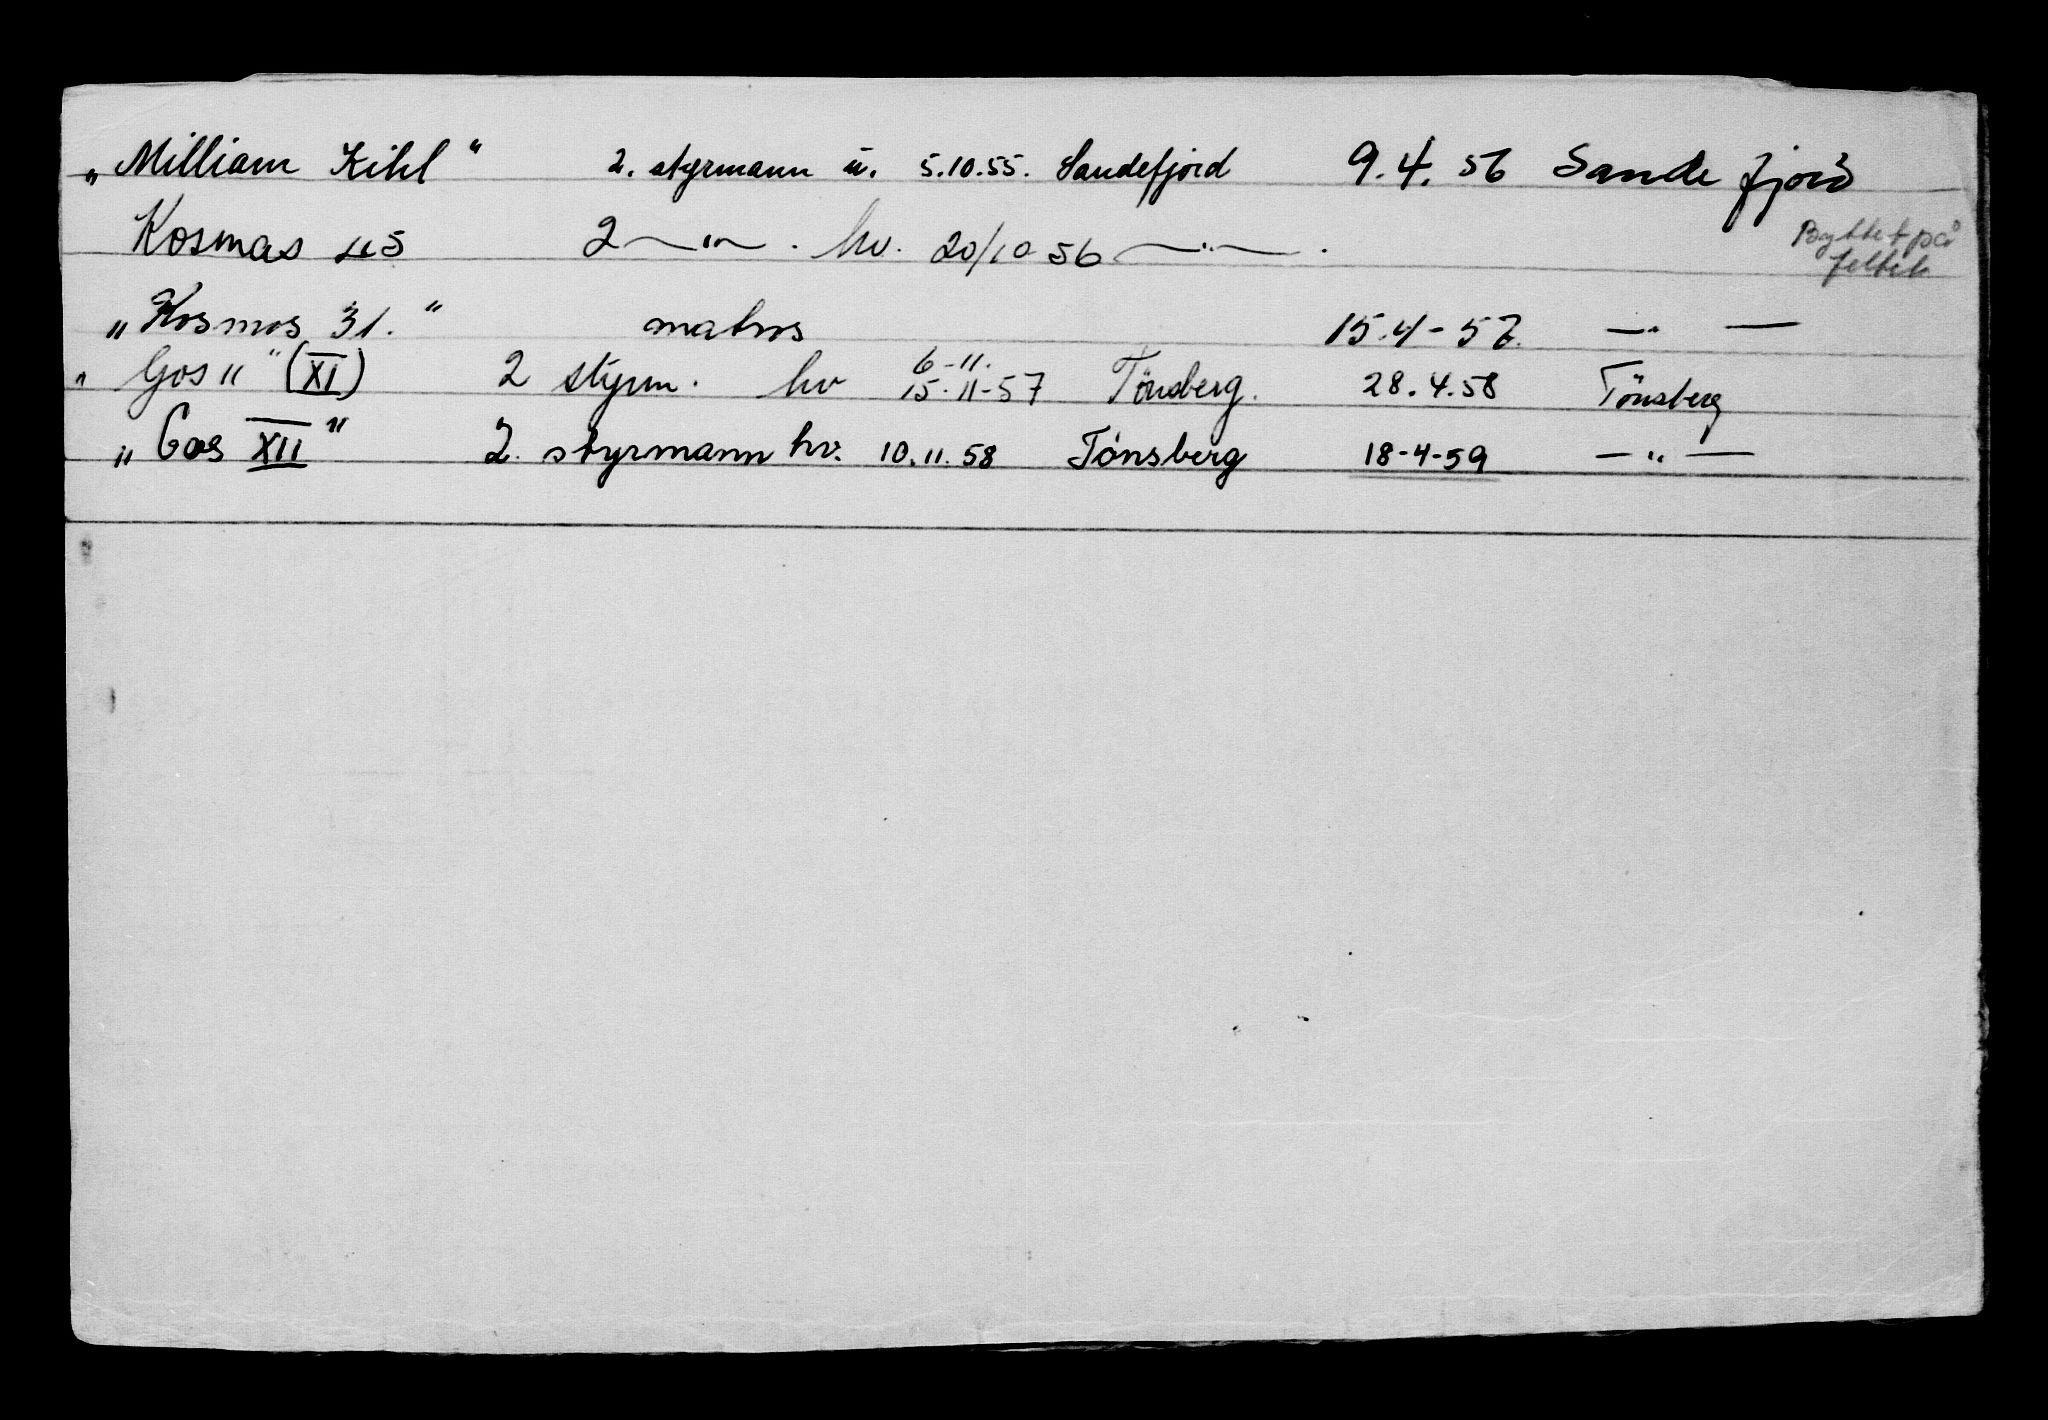 „ Milliam Kihl " 2. styrmann u. 5.10.55. Sandefjord 9.4.56 Sandefjord
Kosmos 45 2 —"— . hv. 20/10 56 —"— . Byttet på feltet
„ Kosmos 31. " matros 15.4-57. —"—
„ Gos 11 " (XI) 2 styrm. hv 6-11. 15.11-57 Tönsberg. 28.4.58 Tönsberg
„ Gos XII " 2. styrmann hv. 10.11.58 Tönsberg 18-4-59 —"—